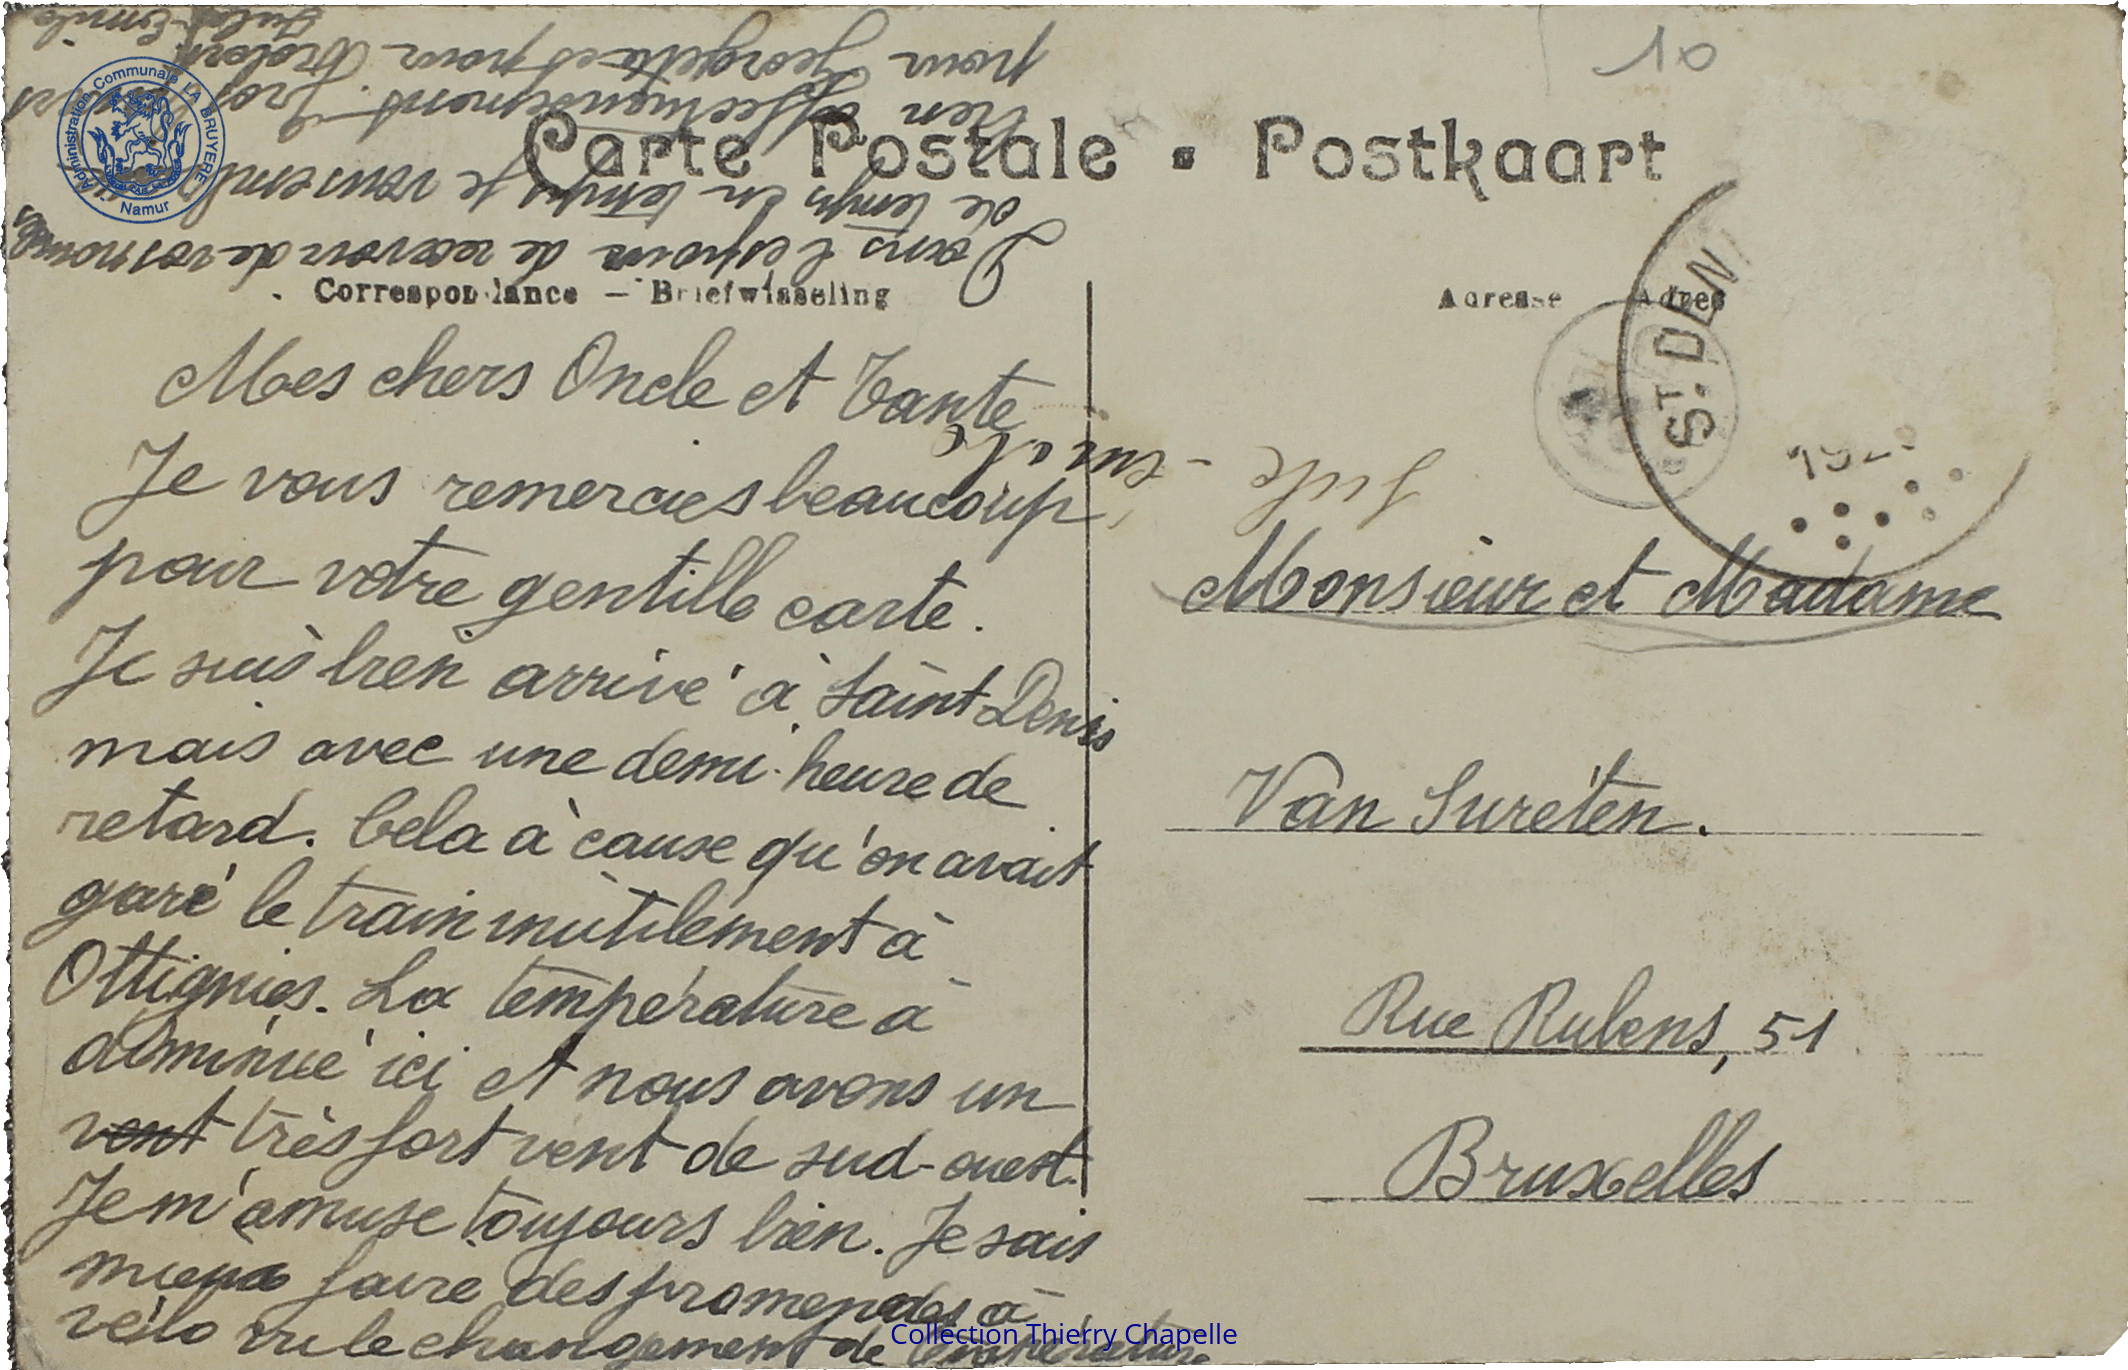 10
Carte Postale - Postkaart
Correspondance — Briefwisseling
Adresse Adres
St. DENI
192
Administration Communale LA BRUYERE
Namur
Mes chers Oncle et Tante
Je vous remercies beaucoup
pour votre gentille carte.
Je suis bien arrivé à Saint Denis
mais avec une demi-heure de
retard. Cela à cause qu'on avait
garé le train inutilement à
Ottignies. La température à
diminué ici et nous avons un
vent très fort vent de sud-ouest.
Je m'amuse toujours bien. Je sais
mieux faire des promenades à
vélo vu le changement de température
Dans l'espoir de recevoir de vos nouvelles
de temps en temps je vous
bien affectueusement.
pour Georgeta et pour
Jules Emile
Jule - emile
Monsieur et Madame
Van Sureten.
Rue Rubens, 51
Bruxelles
Collection Thierry Chapelle